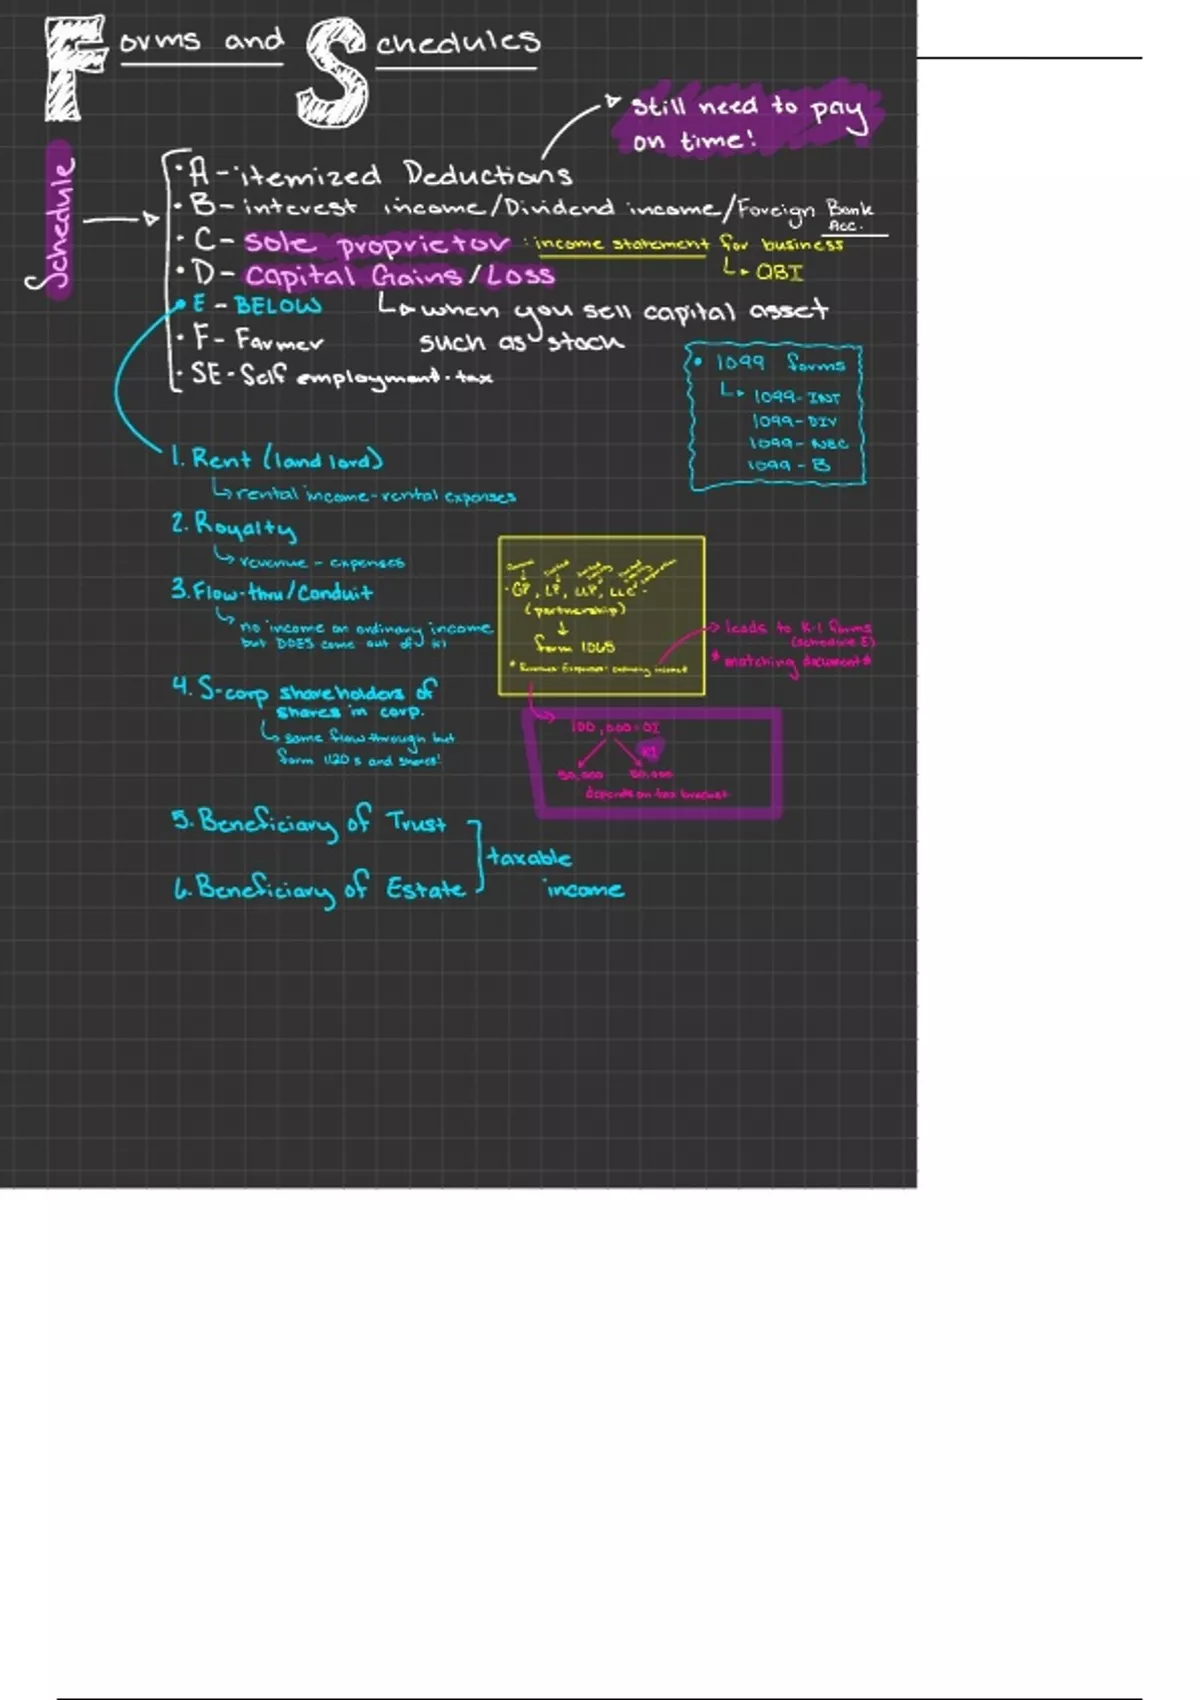 Forms and Schedules
still need to pay
on time!
Schedule
· A - itemized Deductions
· B - interest income/Dividend income/Foreign Bank
Acc.
· C - Sole proprietor : income statement for business
QBI
· D - Capital Gains/Loss
· E - BELOW
when you sell capital asset
such as stock
· F - Farmer
· SE - Self employment tax
· 1099 forms
1099-INT
1099-DIV
1099-NEC
1099-B
1. Rent (landlord)
rental income-rental expenses
2. Royalty
revenue - expenses
3. Flow-thru/Conduit
no income on ordinary income
but DOES come out of K1
· GP, LP, LLP, LLC
(partnership)
form 1065
* Revenue-Expenses-ordinary income
leads to K-1 forms
(schedule E)
* matching document *
4. S-corp shareholders of
shares in corp.
same flow through but
form 1120s and shares!
100,000-OI
K1
50,000 50,000
depends on tax bracket
5. Beneficiary of Trust
6. Beneficiary of Estate
taxable
income